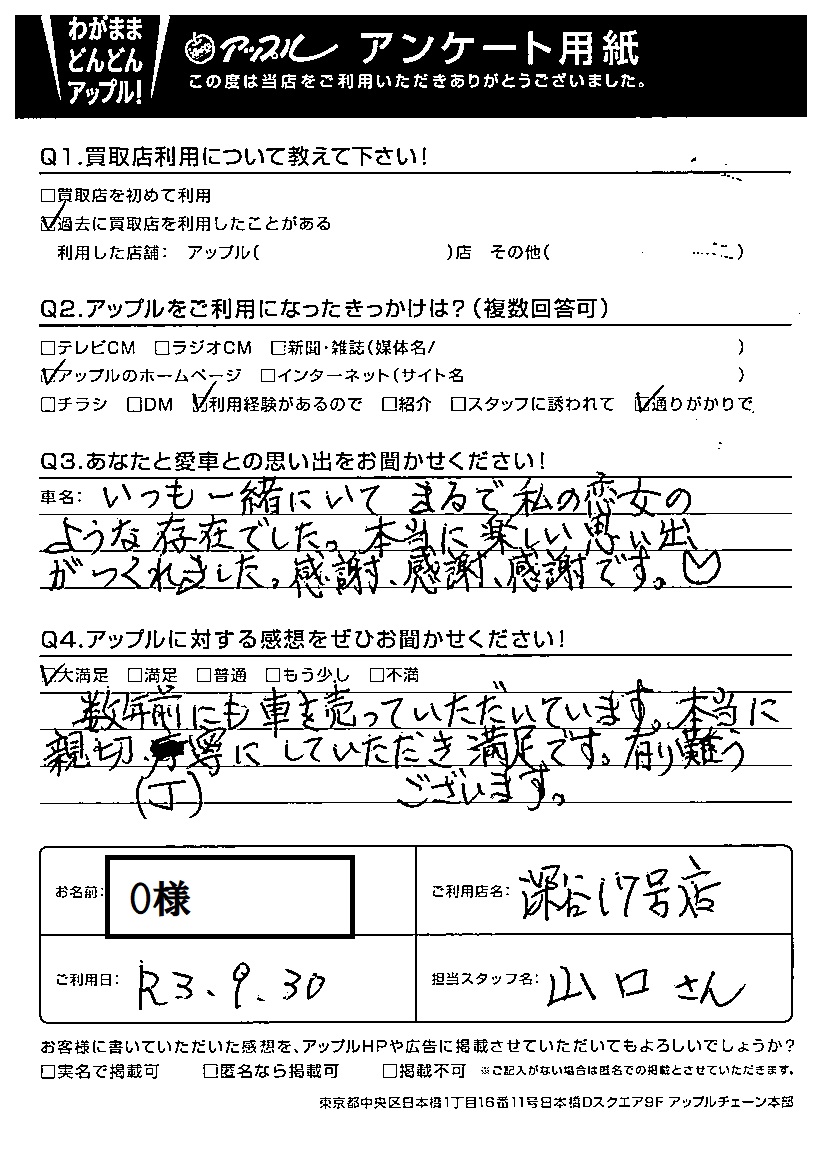 わがまま
どんどん
アップル!
アップル アンケート用紙
この度は当店をご利用いただきありがとうございました。
Q1.買取店利用について教えて下さい!
□買取店を初めて利用
☑過去に買取店を利用したことがある
利用した店舗: アップル( )店 その他( )
Q2.アップルをご利用になったきっかけは?(複数回答可)
□テレビCM □ラジオCM □新聞・雑誌(媒体名/ )
☑アップルのホームページ □インターネット(サイト名 )
□チラシ □DM ☑利用経験があるので □紹介 □スタッフに誘われて ☑通りがかりで
Q3.あなたと愛車との思い出をお聞かせください!
車名: いつも一緒にいて まるで私の恋女の
ような存在でした。本当に楽しい思い出
がつくれました。感謝、感謝、感謝です。♡
Q4.アップルに対する感想をぜひお聞かせください!
☑大満足 □満足 □普通 □もう少し □不満
数年前にも車を売っていただいています。本当に
親切 寧にしていただき満足です。有り難う
(丁) ございます。
お名前: O様
ご利用店名: 深谷17号店
ご利用日: R3.9.30
担当スタッフ名: 山口さん
お客様に書いていただいた感想を、アップルHPや広告に掲載させていただいてもよろしいでしょうか?
□実名で掲載可 □匿名なら掲載可 □掲載不可 ※ご記入がない場合は匿名での掲載とさせていただきます。
東京都中央区日本橋1丁目16番11号日本橋Dスクエア9F アップルチェーン本部